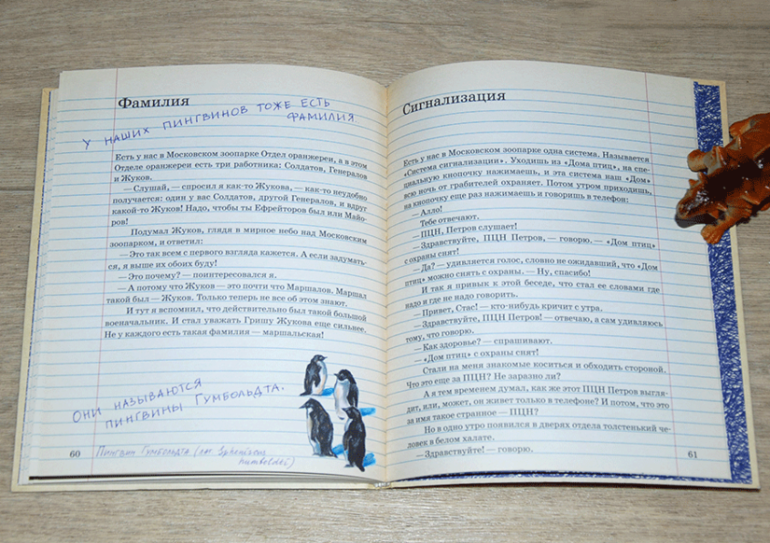 Фамилия
У НАШИХ ПИНГВИНОВ ТОЖЕ ЕСТЬ
ФАМИЛИЯ
Есть у нас в Московском зоопарке Отдел оранжереи, а в этом
Отделе оранжереи есть три работника: Солдатов, Генералов
и Жуков.
— Слушай, — спросил я как-то Жукова, — как-то неудобно
получается: один у вас Солдатов, другой Генералов, и вдруг
какой-то Жуков! Надо, чтобы ты Ефрейторов был или Майо-
ров!
Подумал Жуков, глядя в мирное небо над Московским
зоопарком, и ответил:
— Это так всем с первого взгляда кажется. А если задумать-
ся, я выше их обоих буду!
— Это почему? — поинтересовался я.
— А потому что Жуков — это почти что Маршалов. Маршал
такой был — Жуков. Только теперь не все об этом знают.
И тут я вспомнил, что действительно был такой большой
военачальник. И стал уважать Гришу Жукова еще сильнее.
Не у каждого есть такая фамилия — маршальская!
ОНИ НАЗЫВАЮТСЯ
ПИНГВИНЫ ГУМБОЛЬДТА.
60
Пингвин Гумбольдта (лат. Spheniscus
humboldti)
Сигнализация
Есть у нас в Московском зоопарке одна система. Называется
«Система сигнализации». Уходишь из «Дома птиц», на спе-
циальную кнопочку нажимаешь, и эта система наш «Дом»
всю ночь от грабителей охраняет. Потом утром приходишь,
на кнопочку еще раз нажимаешь и говоришь в телефон:
— Алло!
Тебе отвечают.
— ПЦН, Петров слушает!
— Здравствуйте, ПЦН Петров, — говорю. — «Дом птиц»
с охраны снят!
— Да? — удивляется голос, словно не ожидавший, что «Дом
птиц» можно снять с охраны. — Ну, спасибо!
И так я привык к этой беседе, что стал ее словами где
надо и где не надо говорить.
— Привет, Стас! — кто-нибудь кричит с утра.
— Здравствуйте, ПЦН Петров! — отвечаю, а сам удивляюсь
тому, что говорю.
— Как здоровье? — спрашивают.
— «Дом птиц» с охраны снят!
Стали на меня знакомые коситься и обходить стороной.
Что это еще за ПЦН? Не заразно ли?
А я тем временем думал, как же этот ПЦН Петров выгля-
дит, или, может, он живет только в телефоне? И потом, что это
за имя такое странное — ПЦН?
Но в одно утро появился в дверях отдела толстенький че-
ловек в белом халате.
— Здравствуйте! — говорю.
61